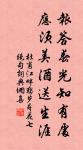 報答春光知有處
應須美酒送生涯
杜甫江畔獨步尋花七
絕句詩典傳匯